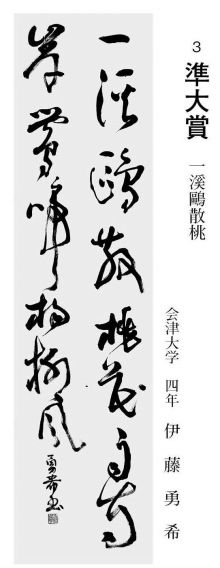 3 準大賞 一溪鷗散桃
会津大学 四年 伊藤勇希
一溪鷗散桃花雨両
岸鶯啼楊柳風 勇希書